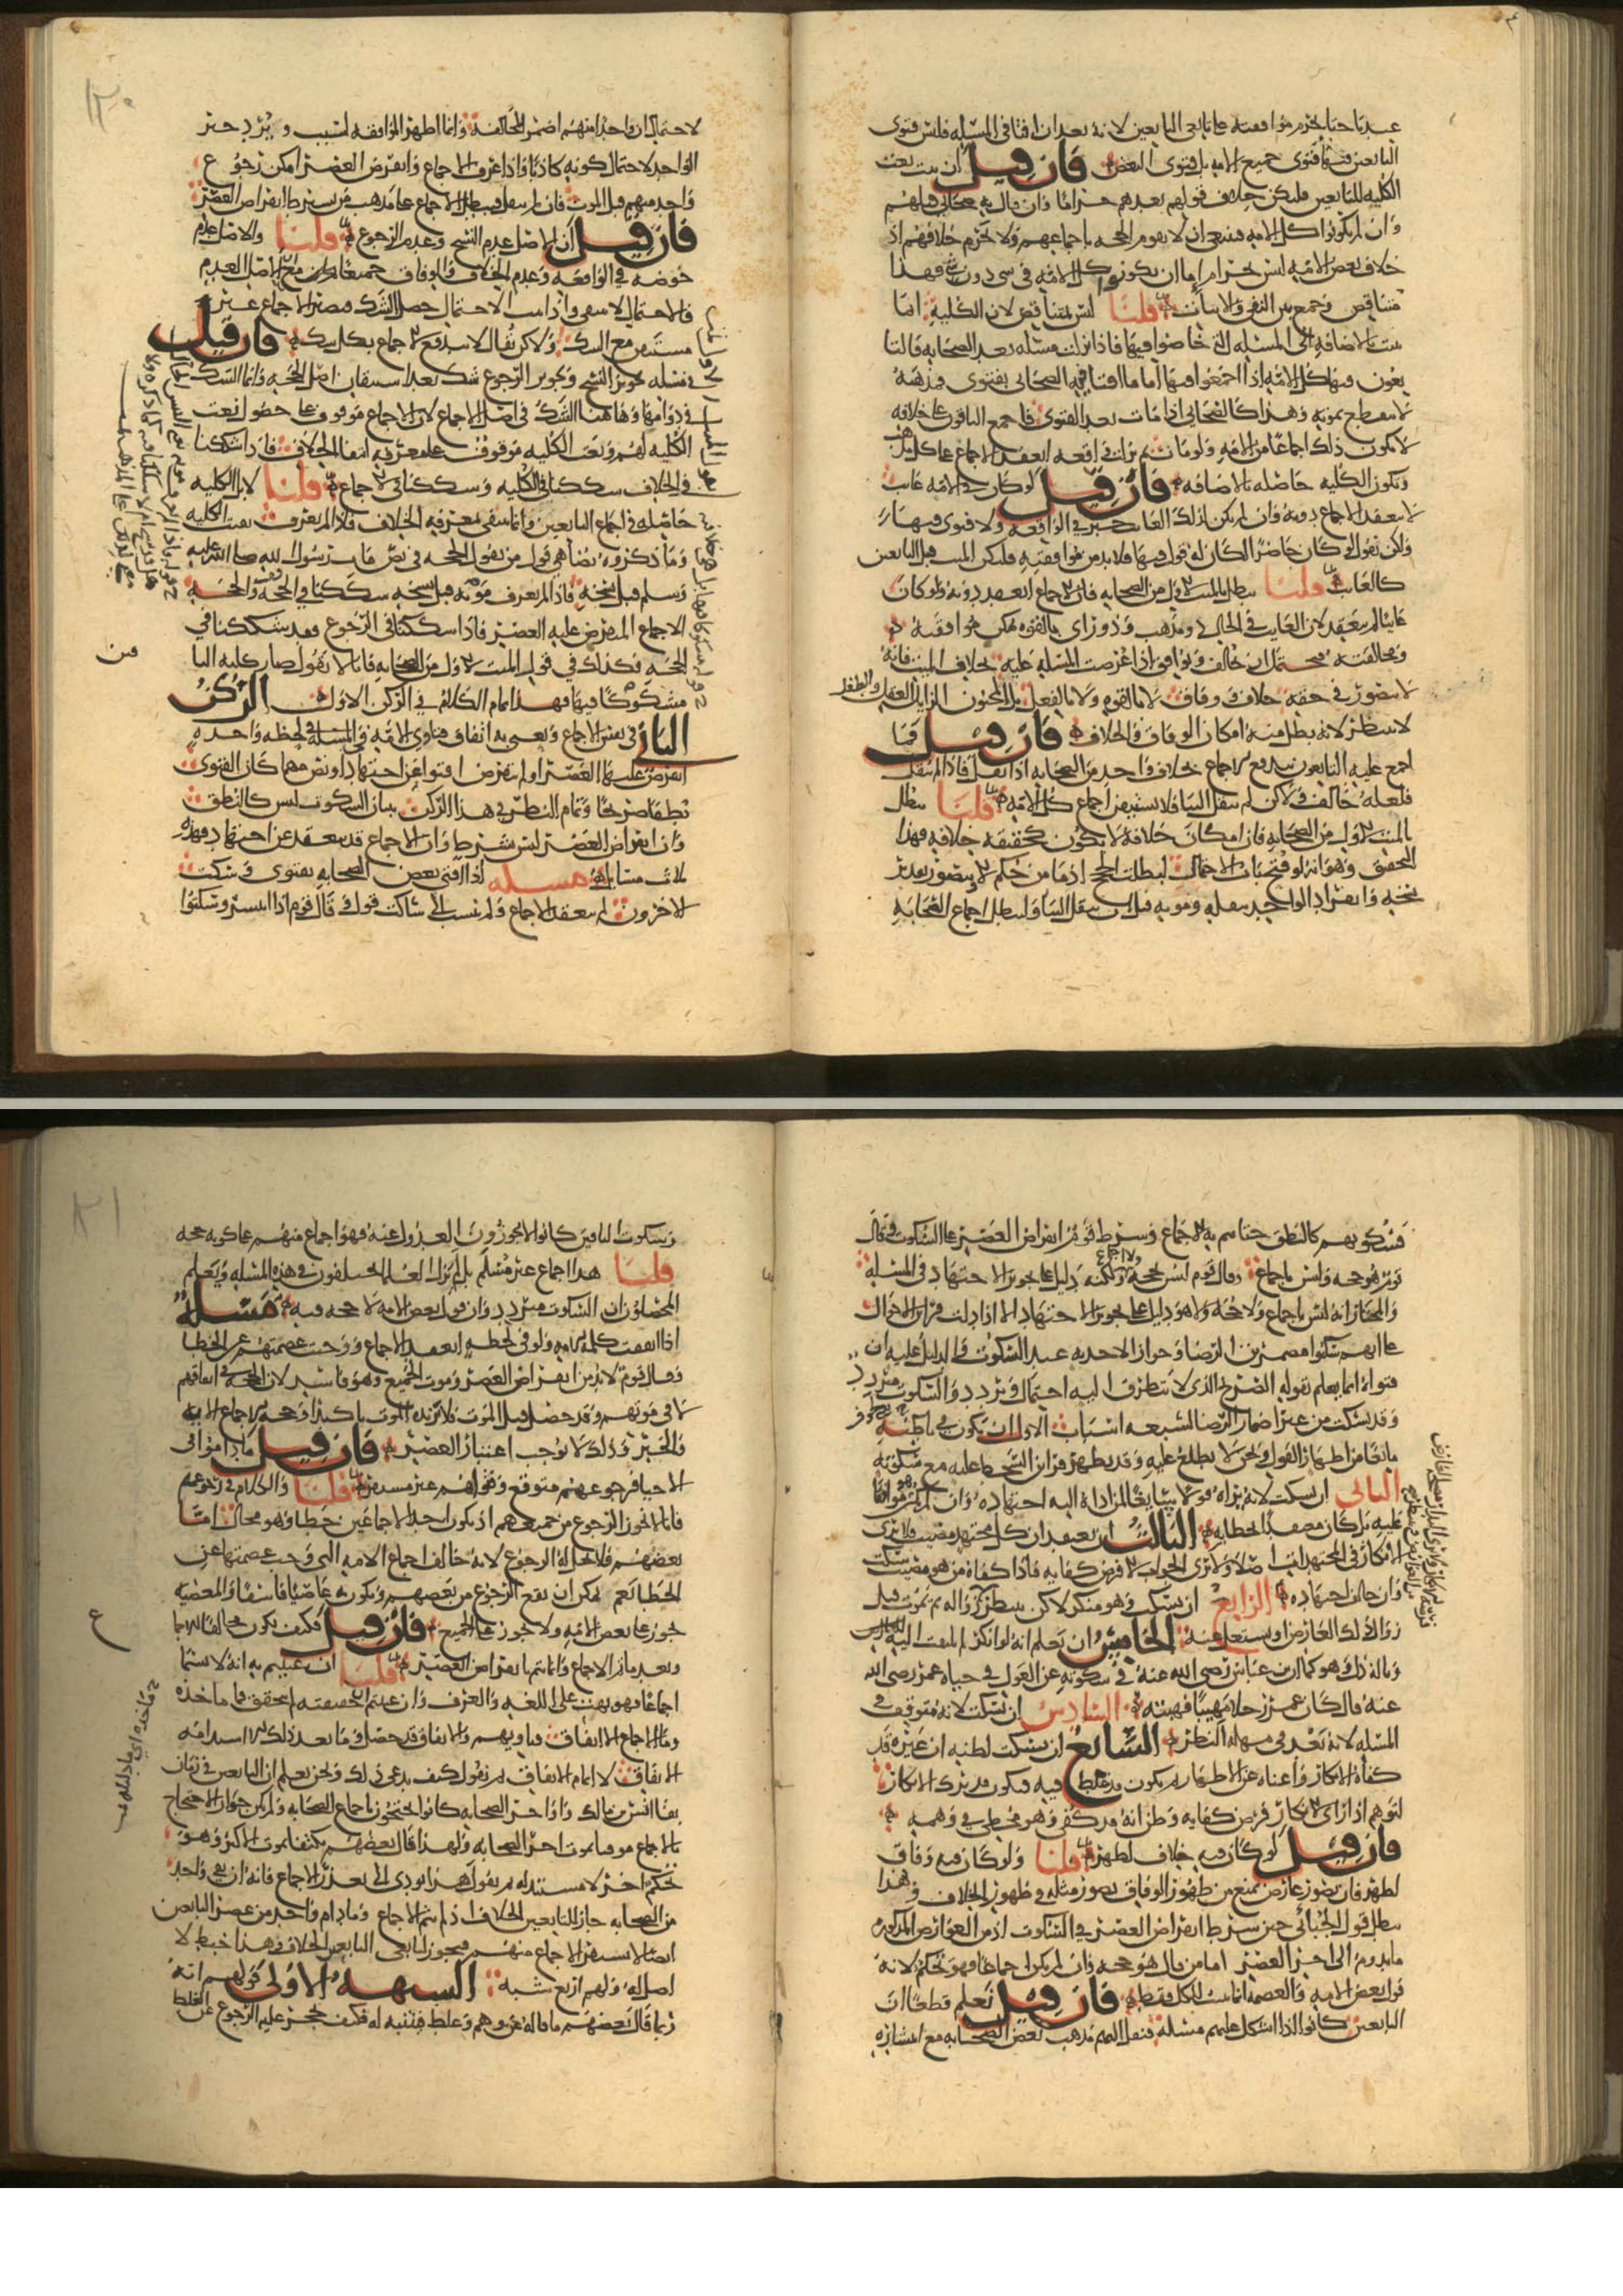 عندنا حتما يحرم موافقته على تابعى التابعين لانه بعد ان افتى فى المسئله فليس فتوى
التابعين فيها فتوى جميع الامه بل فتوى البعض فان قيل ان ثبت نعت
الكليه للتابعين فليكن خلاف قولهم بعدهم حراما وان قال به صحابى قبلهم
وان لم يكونوا كل الامه فينبغى ان لا يقوم الحجه باجماعهم ولا يحرم خلافهم اذ
خلاف بعض الامه ليس بحرام اما ان يكونوا كل الامه فى شى دون شى فهذا
متناقض وجمع بين النفى والاثبات قلنا ليس بمتناقض لان الكليه انما
تثبت بالاضافه الى المسئله التى خاضوا فيها فاذا نزلت مسئله بعد الصحابه فالتا
بعون فيها كل الامه اذا اجمعوا فيها اما ما افتى فيه الصحابى بفتوى فمذهبه
لا ينقطع بموته وهذا كالصحابى اذا مات بعد الفتوى فاجمع الباقون على خلافه
لا يكون ذلك اجماعا من الامه ولو مات ثم نزلت واقعه انعقد الاجماع على كل مذهب
وتكون الكليه حاصله بالاضافه فان قيل لو كان فى الامه غائب
لا ينعقد الاجماع دونه وان لم يكن لذلك الغائب خبر فى الواقعه ولا فتوى فيها
ولكن نقول لو كان حاضرا لكان له قول فيها فلابد من موافقته فليكن الميت قبل التابعين
كالغائب قلنا يبطل بالميت الاول من الصحابه فان الاجماع انعقد دونه ولو كان
غائبا لم ينعقد لان الغايب فى الحال ذو مذهب وذو راى بالقوه تمكن موافقته
ومخالفته فيحتمل ان يخالف ويوافق اذا عرضت المسئله عليه بخلاف الميت فانه
لا يتصور فى حقه خلاف ووفاق لا بالقوه ولا بالفعل بل المجنون الزايل العقل والطفل
لا ينتظر لانه بطل منه امكان الوفاق والخلاف فان قيل فما
اجمع عليه التابعون يندفع الاجماع بخلاف واحد من الصحابه اذا نقل فاذا لم ينقل
فلعله خالف ولكن لم ينقل الينا فلا يستيقن اجماع كل الامه قلنا يبطل
بالميت الاول من الصحابه فان امكان خلافه لا يكون كحقيقه خلافه فهذا
التحقيق وهو انه لو فتح باب الاحتمال لبطلت الحجج اذ ما من حكم الا ويتصور تقدير
نسخه وانفراد الواحد بنقله وموته قبل ان ينقل الينا ولبطل اجماع الصحابه
لاحتمال ان واحدا منهم اضمر المخالفه وانما اظهر الموافقه لسبب ويرد خبر
الواحد لاحتمال كونه كاذبا واذا عرف الاجماع وانقرض العصر امكن رجوع
واحد منهم قبل الموت فان لم ينقل فيبطل الاجماع على مذهب من يشترط انقراض العصر
فان قيل ان الاصل عدم النسخ وعدم الرجوع قلنا والاصل عدم
خوضه فى الواقعه وعدم الخلاف والوفاق جميعا
فالاحتمال لا ينتفى واذا ثبت الاحتمال حصل الشك فيصير الاجماع غير
مستيقن مع الشك ولاكن نقال لا يندفع الاجماع بكل شك فان قيل
فى مسئله تجويز النسخ وتجويز الرجوع شك بعد استيقان اصل الحجه وانما الشك
فى دوامها وهاهنا الشك فى اصل الاجماع لان الاجماع موقوف على حصول نعت
الكليه لهم ونعت الكليه موقوف على معرفه انتفا الخلاف فاذا شككنا
فى الخلاف شككنا فى الكليه وشككنا فى الاجماع قلنا لا بل الكليه
حاصله فى اجماع التابعين وانما ينتفى بمعرفه الخلاف فاذا لم يعرف بقيت الكليه
وما ذكروه يضاهى قول من يقول الحجه فى نص مات رسول الله صلى الله عليه
وسلم قبل نسخه فاذا لم يعرف موته قبل نسخه شككنا فى الحجه والحجه
الاجماع المنقرض عليه العصر فاذا شككنا فى الرجوع فقد شككنا فى
الحجه فكذلك فى قول الميت الاول من الصحابه فانا لا نقول صار كليه البا
مشكوكا فيها فهذا تمام الكلام فى الركن الاول الركن
الثانى فى نفس الاجماع ونعنى به اتفاق فتاوى الامه فى المسئله فى لحظه واحده
انقرض عليها العصر او لم ينقرض افتوا عن اجتهاد او نص مهما كان الفتوى
نطقا صريحا وتمام النظر فى هذا الركن ببيان ان السكوت ليس كالنطق
وان انقراض العصر ليس بشرط وان الاجماع قد ينعقد عن اجتهاد فهذه
ثلاث مسايل مسئله اذا افتى بعض الصحابه بفتوى وسكت
الاخرون لم ينعقد الاجماع ولم ينسب الى ساكت قول وقال قوم اذا انتشر وسكتوا
فسكوتهم كالنطق حتى يتم به الاجماع وشرط قوم انقراض العصر على السكوت وقال
قوم هو حجه وليس باجماع وقال قوم ليس بحجه ولا اجماع ولكنه دليل على تجويز الاجتهاد فى المسئله
والمختار انه ليس باجماع ولا حجه ولا هو دليل على تجويز الاجتهاد الا اذا دلت قراين الاحوال
على انهم سكتوا مضمرين الرضا وجواز الاخذ به عند السكوت والدليل عليه ان
فتواه انما يعلم بقوله الصريح الذى لا يتطرق اليه احتمال وتردد والسكوت متردد
وقد يسكت من غير اضمار الرضا لسبعه اسباب الاول ان يكون فى باطنه
مانع من اظهار القول ونحن لا نطلع عليه وقد يظهر قراين السخط عليه مع سكوته
الثانى ان يسكت لانه يراه قولا سايغا لمن اداه اليه اجتهاده وان لم يكن هو موافقا
عليه بل كان معتقدا لخطايه الثالث ان يعتقد ان كل مجتهد مصيب فلا يرى
الانكار فى المجتهدات اصلا ولا يرى الجواب الا فرض كفايه فاذا كفاه من هو مصيب سكت
وان خالف اجتهاده الرابع ان يسكت وهو منكر لاكن ينتظر زواله ثم يموت قبل
زوال ذلك العارض او يشتغل عنه الخامس ان يعلم انه لو انكر لم يلتفت اليه
وناله ذل وهو كما قال ابن عباس رضى الله عنه فى سكوته عن العول فى حياه عمر رضى الله
عنه قال كان عمر رجلا مهيبا فهبته السادس ان يسكت لانه متوقف فى
المسئله لانه بعد فى مهله النظر السابع ان يسكت لظنه ان غيره قد
كفاه الانكار واغناه عن الاظهار ثم يكون قد غلط فيه فيكون قد ترك الانكار
لتوهم اذ راى الانكار فرض كفايه وظن انه قد كفى وهو مخطى فى وهمه
فان قيل لو كان فيه خلاف لظهر قلنا ولو كان فيه وفاق
لظهر فان تصور عارض يمنع من ظهور الوفاق تصور مثله فى ظهور الخلاف وهذا
يبطل قول الجبائى حين شرط انقراض العصر فى السكوت اذ من العوارض المذكوره
ما يدوم الى اخر العصر اما من قال هو حجه وان لم يكن اجماعا فهو تحكم لانه
قول بعض الامه والعصمه انما تثبت للكل فقط فان قيل نعلم قطعا ان
التابعين كانوا اذا اشكل عليهم مسئله فنقل اليهم مذهب بعض الصحابه مع انتشاره
وسكوت الباقين كانوا لا يجوزون العدول عنه فهو اجماع منهم على كونه حجه
قلنا هذا اجماع غير مسلم بل لم يزل العلما مختلفون فى هذه المسئله ويعلم
المحصلون ان السكوت متردد وان قول بعض الامه لا حجه فيه مسئله
اذا اتفقت كلمه الامه ولو فى لحظه انعقد الاجماع ووجبت عصمتهم عن الخطا
وقال قوم لابد من انقراض العصر وموت الجميع وهو فاسد لان الحجه فى اتفاقهم
لا فى موتهم وقد حصل قبل الموت فلا يزيده الموت تاكيدا وحجه الاجماع الايه
والخبر وذلك لا يوجب اعتبار العصر فان قيل ما داموا فى
الاحيا فرجوعهم متوقع وفتواهم غير مستقر قلنا والكلام فى رجوعهم
فانا لا نجوز الرجوع من جميعهم اذ يكون احد الاجماعين خطا وهو محال اما
بعضهم فلا يحل له الرجوع لانه خالف اجماع الامه التى وجبت عصمتها عن
الخطا نعم يمكن ان يقع الرجوع من بعضهم ويكون به عاصيا فاسقا والمعصيه
تجوز على بعض الامه ولا تجوز على الجميع فان قيل كيف يكون مخالفا للاجما
وبعد ما تم الاجماع وانما يتم بانقراض العصر قلنا ان عنيتم به انه لا يسمى
اجماعا فهو بهت على اللغه والعرف وان عنيتم ان حقيقته لم يتحقق فما ماخذه
وما الاجماع الا اتفاق فتاويهم والاتفاق قد حصل وما بعد ذلك استدامه
الاتفاق لا اتمام الاتفاق ثم نقول كيف يدعى ذلك ونحن نعلم ان التابعين فى زمان
بقا انس بن مالك واواخر الصحابه كانوا يحتجون باجماع الصحابه ولم يكن جواز الاحتجاج
بالاجماع موقتا بموت اخر الصحابه ولهذا قال بعضهم يكتفى بموت الاكثر وهو
تحكم اخر لا مستند له ثم نقول هذا يودى الى تعذر الاجماع فانه ان بقى واحد
من الصحابه جاز للتابعين الخلاف اذ لم يتم الاجماع وما دام واحد من عصر التابعين
ايضا لا يستقر الاجماع منهم فيجوز لتابعى التابعين الخلاف وهذا خبط لا
اصل له ولهم اربع شبه الشبهه الاولى قولهم انه
ربما قال بعضهم ما قاله عن وهم وغلط فتنبه له فكيف يحجر عليه الرجوع عن الغلط